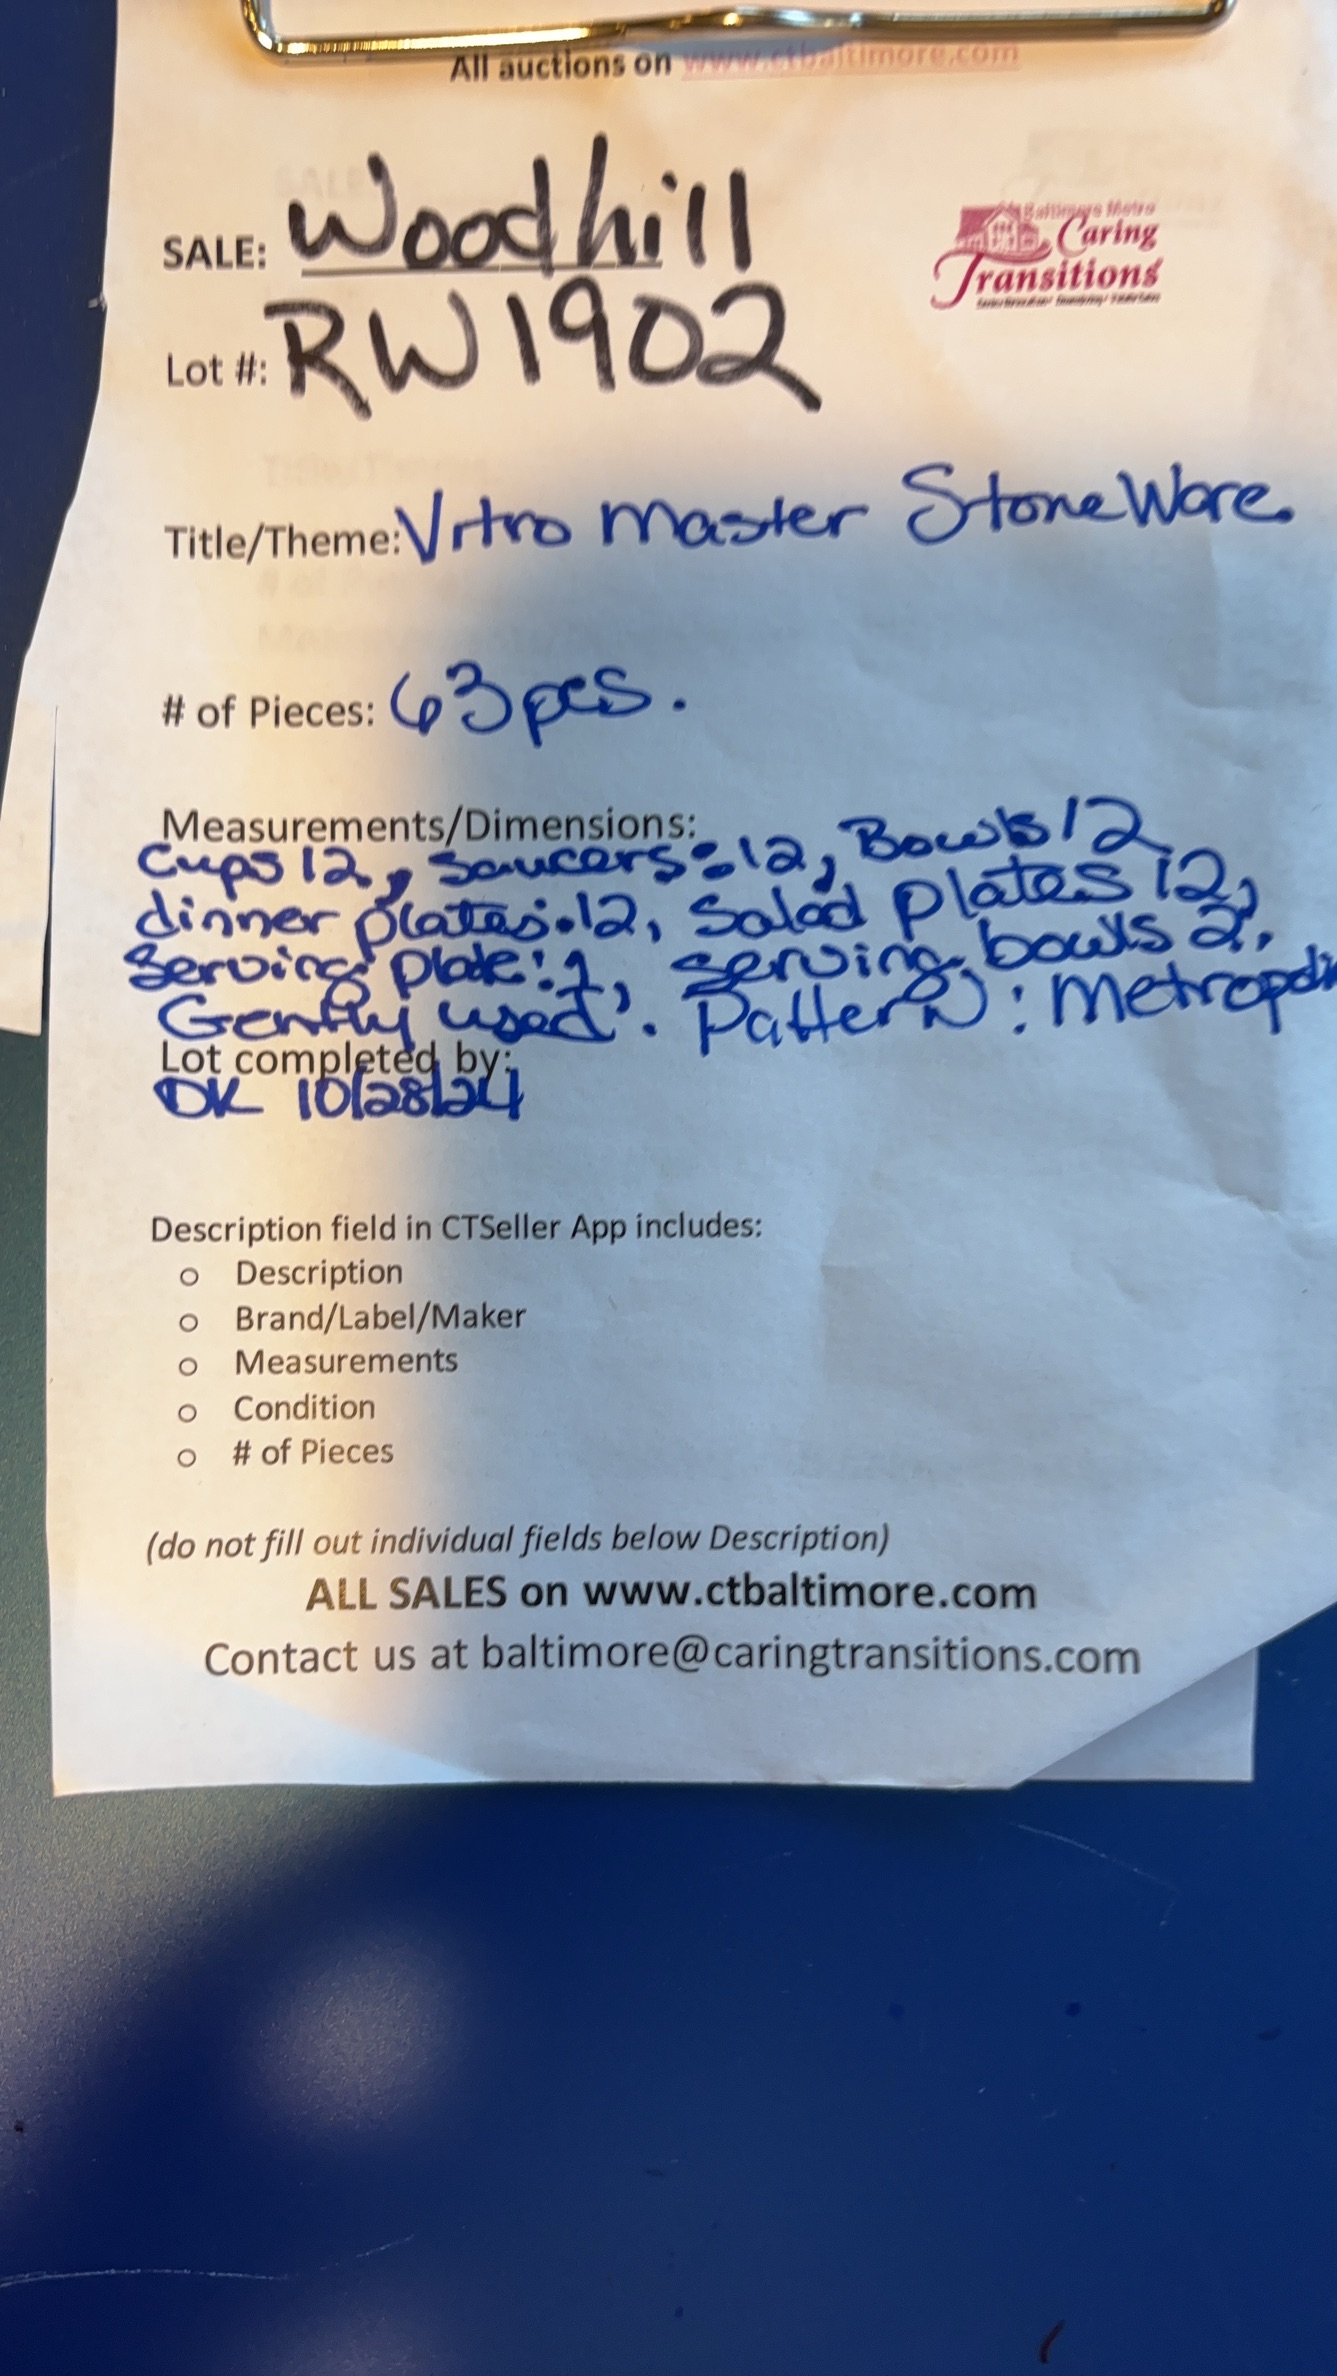 All auctions on www.ctbaltimore.com
SALE: Woodhill
Baltimore Metro
Caring
Transitions
Lot #: RW1902
Title/Theme: Vitro Master StoneWare.
# of Pieces: 63pcs.
Measurements/Dimensions:
Cups 12, Saucers: 12, Bowls 12
dinner plates: 12, Salad plates 12,
Serving plate: 1, serving bowls 2,
Gently used. Pattern: Metropoli
Lot completed by:
DK 10/28/24
Description field in CTSeller App includes:
o Description
o Brand/Label/Maker
o Measurements
o Condition
o # of Pieces
(do not fill out individual fields below Description)
ALL SALES on www.ctbaltimore.com
Contact us at baltimore@caringtransitions.com